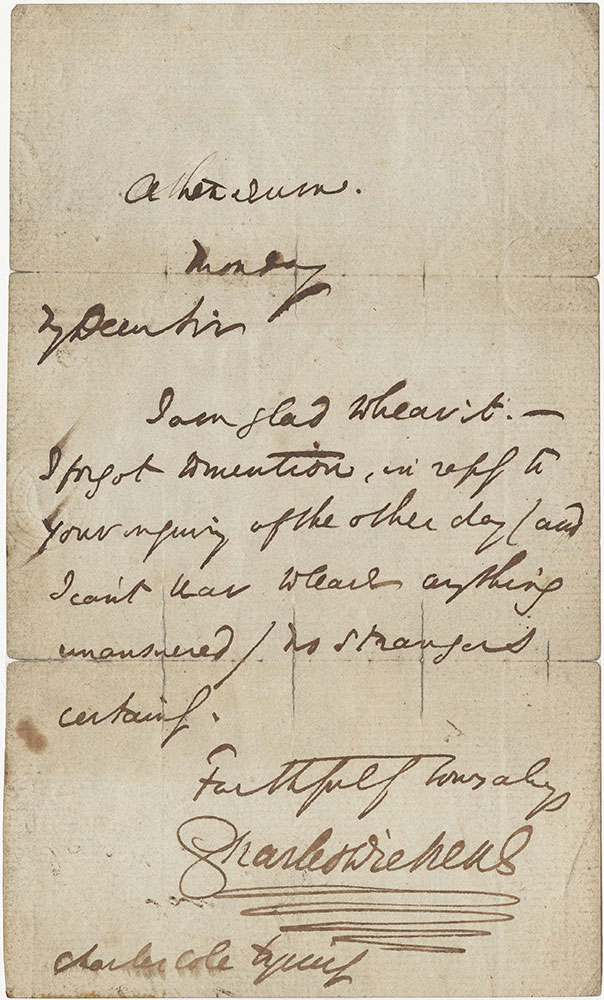 Athenæum.
Monday
My Dear Sir
I am glad to hear it. —
I forgot to mention, in reply to
your inquiry of the other day (and
I can't bear to leave anything
unanswered) no strangers
certainly.
Faithfully Yours always
Charles Dickens
Charles Cole Esquire